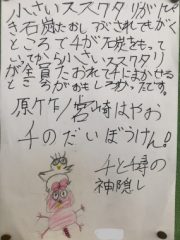 小さいススワタリがでて
き石炭おしつぶされてもがく
ところで千が石炭をもって
いってから小さいススワタリ
が全員たおれて千にまかせる
ところがおもしろかったです。
原作/宮崎はやお
千のだいぼうけん!
千と千尋の
神隠し